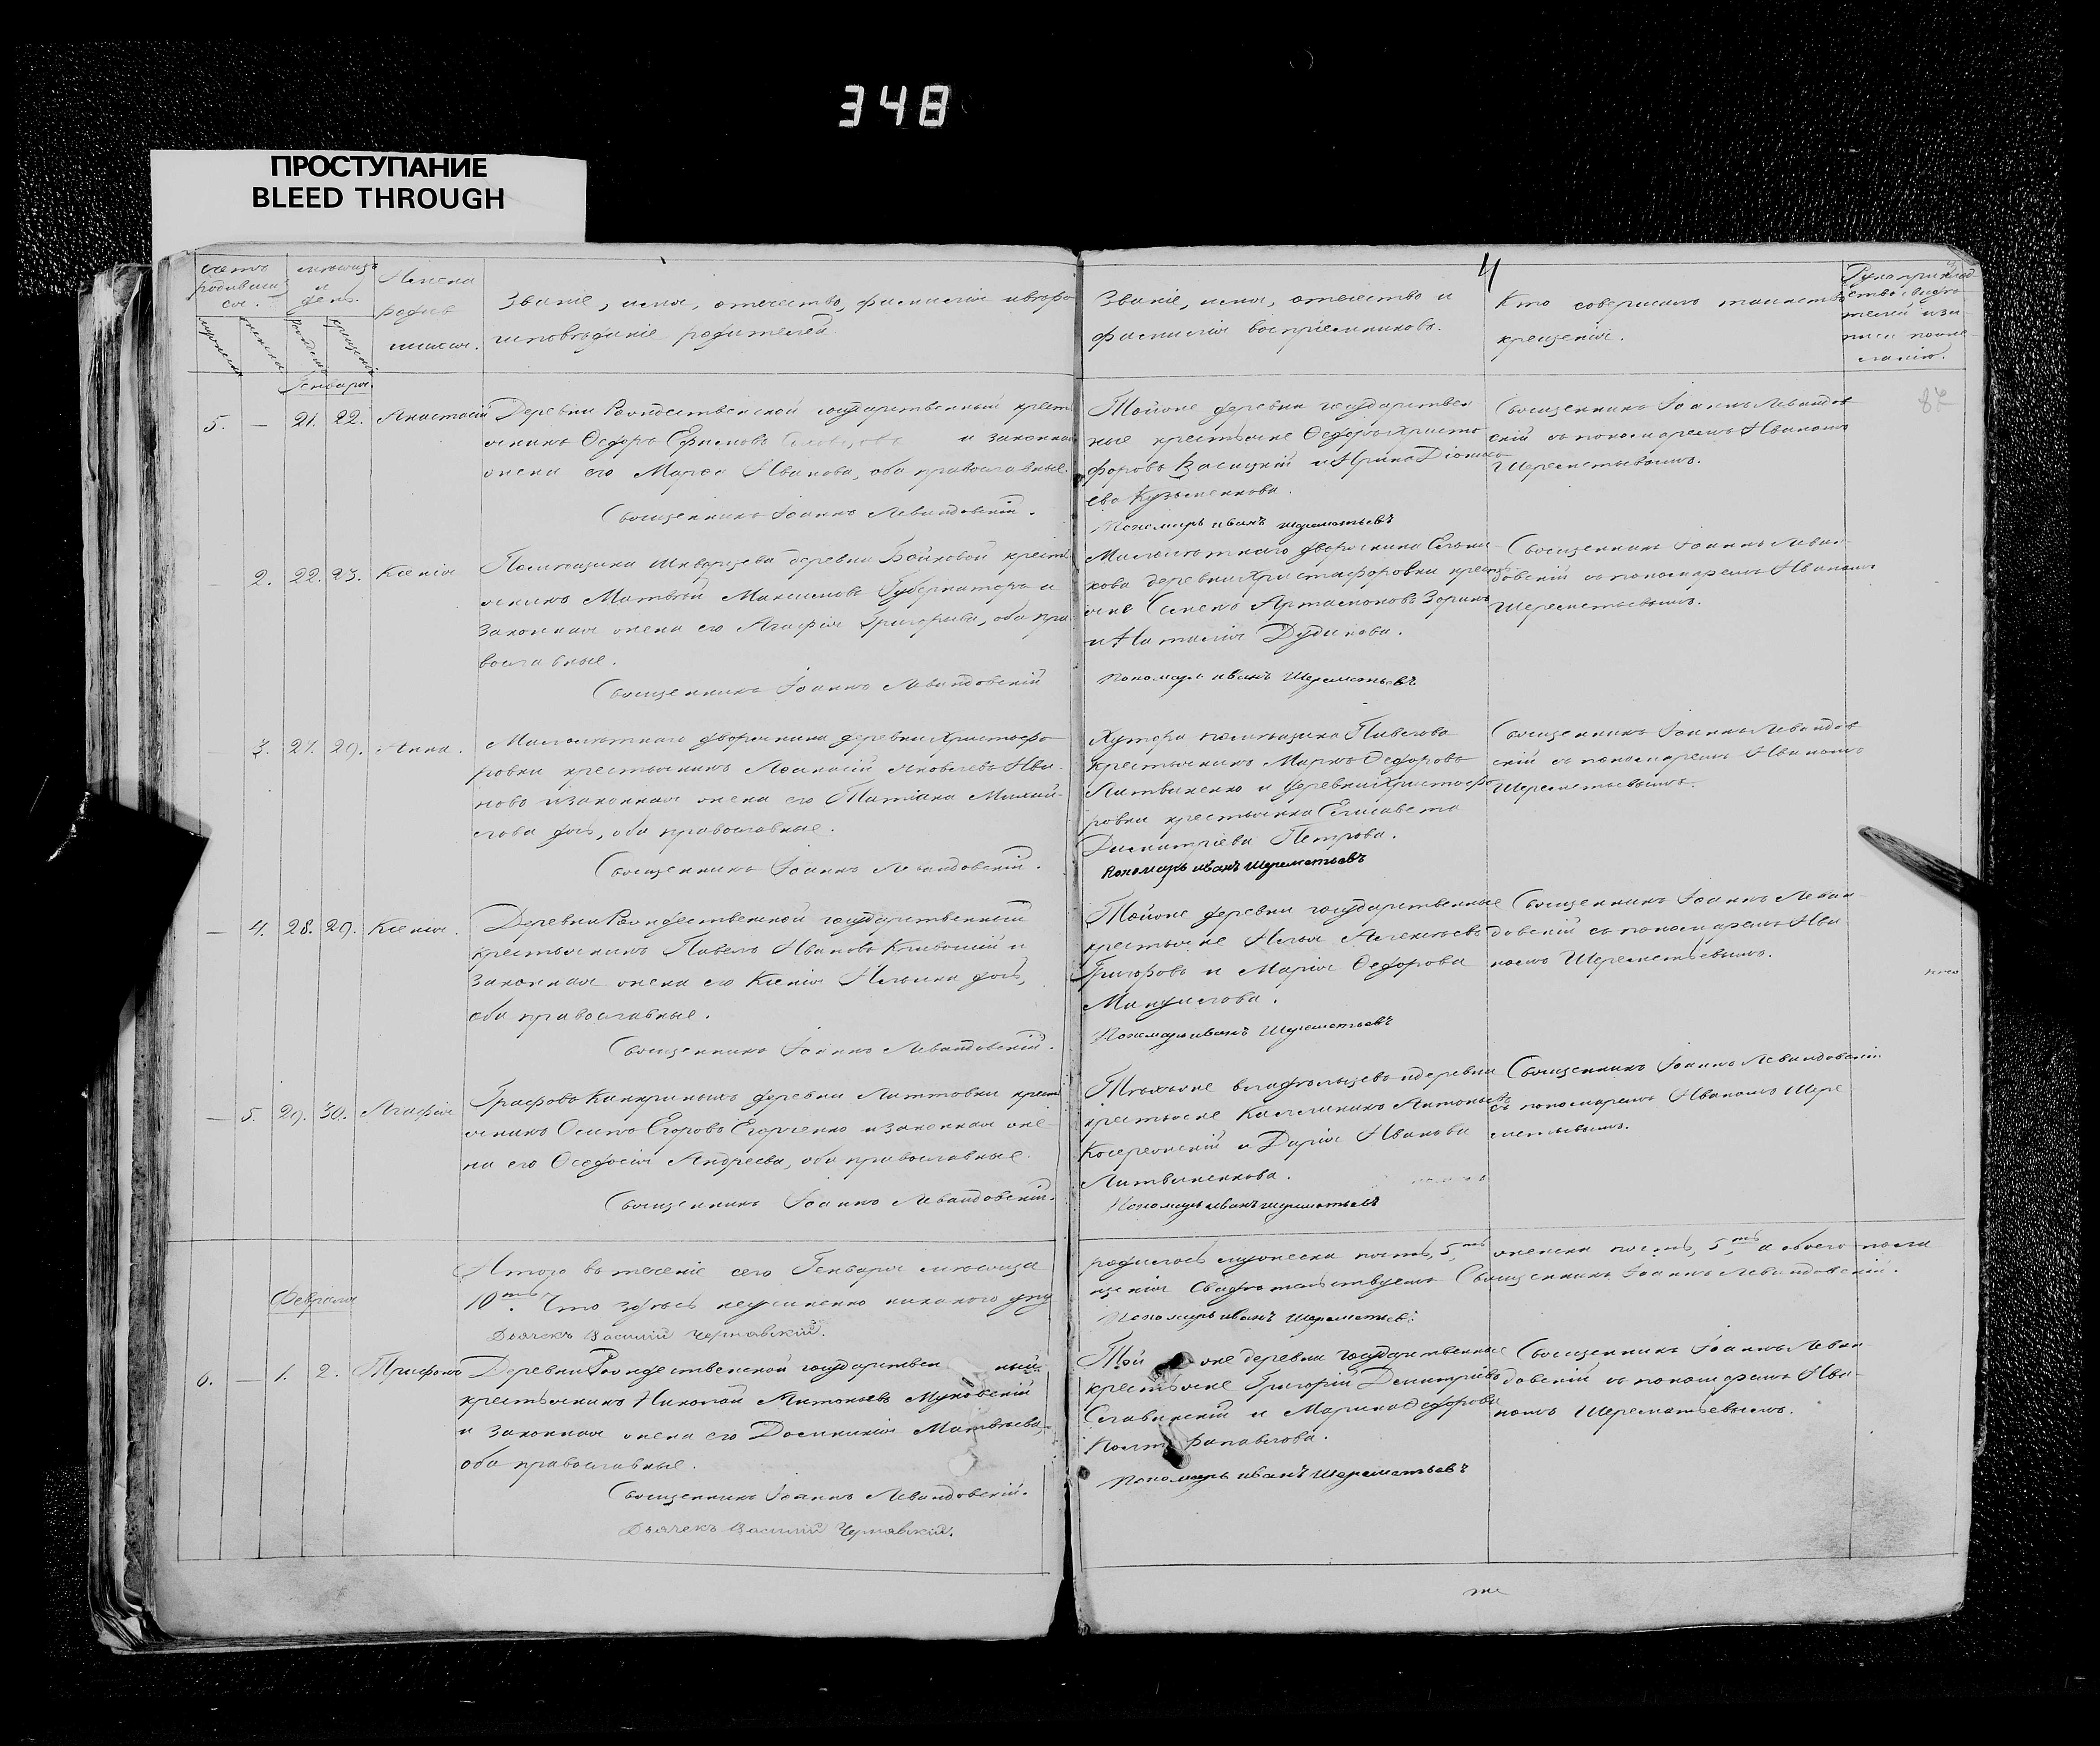 348
ПРОСТУПАНИЕ
BLEED THROUGH
4
счетъ
родивших
ся.
мѣсяцъ
и
день.
Имена
родив
шихся.
Званіе, имя, отечество, фамилія
исповѣданіе родителей.
Званіе, имя, отечество и
фамилія воспріемниковъ.
Кто совершалъ таинство
крещенія.
Генваря.
5. — 21. 22. Анастасій
Деревни Рождественской государственный крест
янинъ Ѳедоръ Ефимовъ и законная
жена его Марѳа Иванова, оба православные.
Священникъ Іоаннъ Левандовскій.
Тойже деревни государствен
ные крестьяне Ѳедоръ Христо
форовъ и Ирина Діониси
ева Кузьменкова.
Пономарь Иванъ Шереметьевъ
Священникъ Іоаннъ Левандов
скій съ пономаремъ Иваномъ
Шереметьевымъ.
87
— 2. 22. 23. Ксенія
Помѣщика деревни Бойковой крестъ
янинъ Матвѣй Максимовъ Губернаторъ и
законная жена его Агафія Григорьева, оба пра
вославные.
Священникъ Іоаннъ Левандовскій
Малолѣтнаго дворянина
кова деревни Христофоровки крестъ
яне Семенъ Артамоновъ Зоринъ
и Наталія Дудникова.
Пономарь Иванъ Шереметьевъ
Священникъ Іоаннъ Леван-
довскій съ пономаремъ Иваномъ
Шереметьевымъ.
— 3. 27. 29. Анна.
Малолѣтнаго дворянина деревни Христофо
ровки крестьянинъ Аѳанасій Яковлевъ Ива-
новъ и законная жена его Татіана Михай-
лова дочь, оба православные.
Священникъ Іоаннъ Левандовскій.
Хутора помѣщика Павлова
крестьянинъ Маркъ Ѳедоровъ
Литвиненко и деревни Христофо
ровки крестьянка Елисавета
Димитріева Петрова.
Пономарь Иванъ Шереметьевъ
Священникъ Іоаннъ Левандов
скій съ пономаремъ Иваномъ
Шереметьевымъ.
— 4. 28. 29. Ксенія.
Деревни Рождественской государственный
крестьянинъ Павелъ Ивановъ и
законная жена его Ксенія Ильина дочь,
оба православные.
Священникъ Іоаннъ Левандовскій.
Тойже деревни государственные
крестьяне Илья Алексѣевъ
Григоровъ и Марія Ѳедорова
Мануилова.
Пономарь Иванъ Шереметьевъ
Священникъ Іоаннъ Леван-
довскій съ пономаремъ Ива
номъ Шереметьевымъ.
— 5. 29. 30. Агафія
Графовъ Канкриныхъ деревни крестъ
янинъ Осипъ Егоровъ Егорченко и законная же-
на его Ѳеодосія Андреева, оба православные.
Священникъ Іоаннъ Левандовскій.
Тѣхъже владѣльцевъ и деревни
крестьяне Каллиникъ Антоньевъ
и Дарія Иванова
Литвиненкова.
Пономарь Иванъ Шереметьевъ
Священникъ Іоаннъ Левандовскій
съ пономаремъ Иваномъ Шере
метьевымъ.
Итого въ теченіе сего Генваря мѣсяца родилось мужеска пять, 5ть женска пять, 5ть а обоего пола
10ть. Что здѣсь неучинено никакого упу щенія свидѣтельствуемъ Священникъ Іоаннъ Левандовскій.
Дьячекъ Василій Чернявскій.
Пономарь Иванъ Шереметьевъ
Февраля
6. — 1. 2. Трифонъ
Деревни Рождественской государствен ный
крестьянинъ Николай Антоньевъ Муковскій
и законная жена его Домникія Матвѣева,
оба православные.
Священникъ Іоаннъ Левандовскій.
Дьячекъ Василій Чернявскій.
Той же деревни государственные
крестьяне Григорій Димитріевъ
Славинскій и Марина Ѳедорова
Пономарь Иванъ Шереметьевъ
Священникъ Іоаннъ Леван
довскій съ пономаремъ Ива-
номъ Шереметьевымъ.